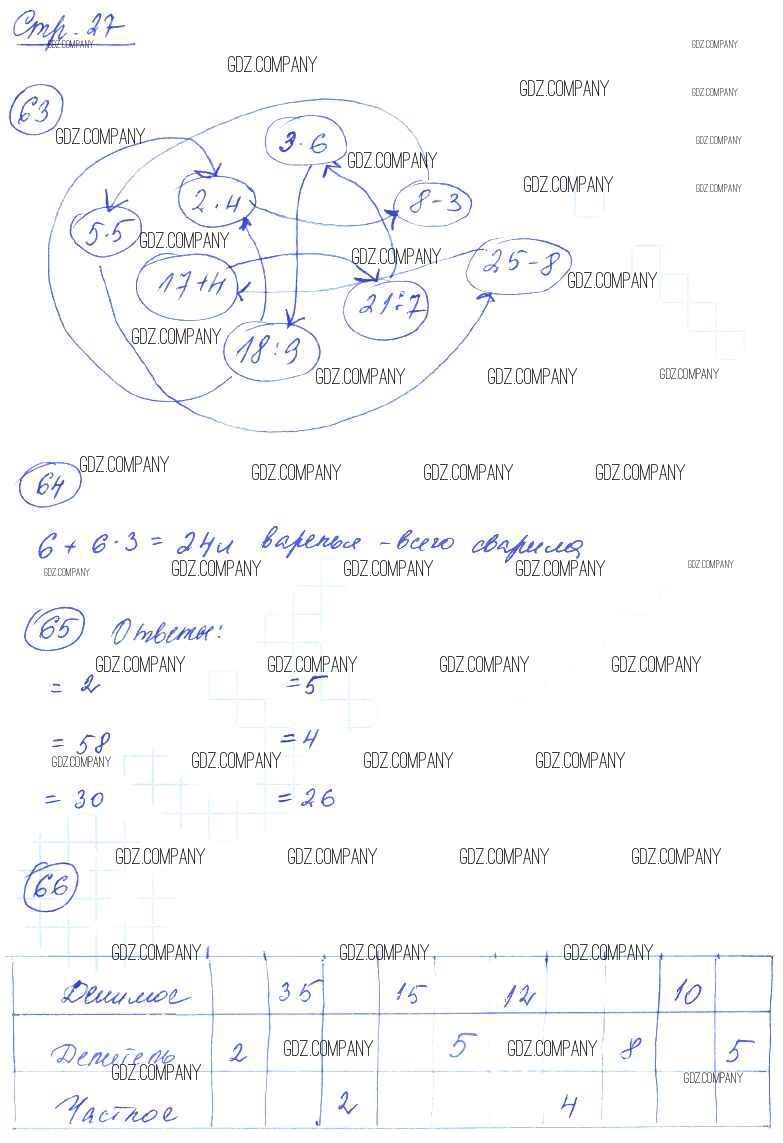 Стр. 27
GDZ.COMPANY
GDZ.COMPANY GDZ.COMPANY
GDZ.COMPANY GDZ.COMPANY
63
GDZ.COMPANY 3·6 GDZ.COMPANY
GDZ.COMPANY
2·4 8-3 GDZ.COMPANY GDZ.COMPANY
5·5 GDZ.COMPANY
17+4 GDZ.COMPANY 25-8 GDZ.COMPANY
21:7
GDZ.COMPANY 18:9
GDZ.COMPANY GDZ.COMPANY GDZ.COMPANY
64 GDZ.COMPANY GDZ.COMPANY GDZ.COMPANY GDZ.COMPANY
6 + 6·3 = 24л варенья - всего сварила
GDZ.COMPANY GDZ.COMPANY GDZ.COMPANY GDZ.COMPANY GDZ.COMPANY
65 Ответы:
GDZ.COMPANY GDZ.COMPANY GDZ.COMPANY GDZ.COMPANY
= 2 = 5
= 58 = 4
GDZ.COMPANY GDZ.COMPANY GDZ.COMPANY GDZ.COMPANY
= 30 = 26
GDZ.COMPANY GDZ.COMPANY GDZ.COMPANY GDZ.COMPANY
66
GDZ.COMPANY GDZ.COMPANY GDZ.COMPANY
Делимое 35 15 12 10
Делитель 2 GDZ.COMPANY 5 GDZ.COMPANY 8 5
GDZ.COMPANY GDZ.COMPANY
Частное 2 4